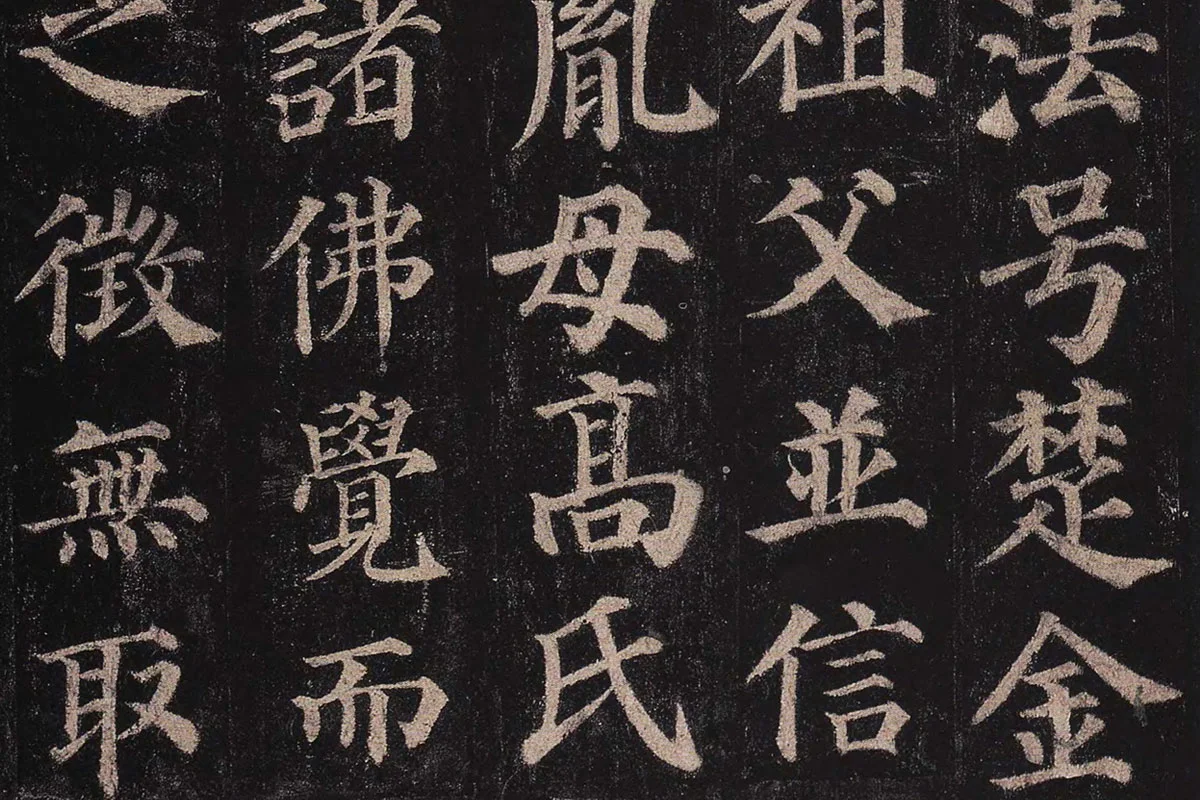 法号楚金
祖父並信
胤母高氏
諸佛覺而
之徵無取